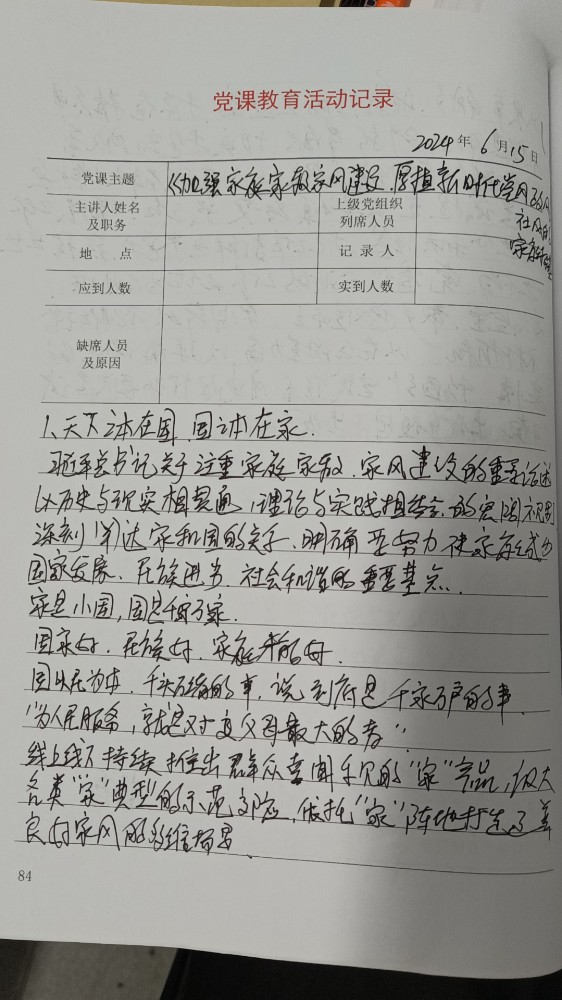 党课教育活动记录
2024年6月15日
党课主题 《加强家庭家教家风建设,厚植新时代党风政风
社风的
家庭
主讲人姓名及职务 上级党组织列席人员
地 点 记 录 人
应到人数 实到人数
缺席人员及原因
1、天下之本在国,国之本在家.
习近平总书记关于注重家庭家教、家风建设的重要论述
以历史与现实相贯通,理论与实践相结合的宏阔视野
深刻阐达家和国的关系、明确要努力使家庭成为
国家发展、民族进步、社会和谐的重要基点.
家是小国,国是千万家.
国家好,民族好,家庭才能好.
国以民为本,千头万绪的事,说到底是千家万户的事.
"为人民服务,就是对父母最大的孝"
线上线下持续推出群众喜闻乐见的"家"产品,
各类"家"典型的示范效应,依托"家"阵地打造了
良好家风的多维场景.
84